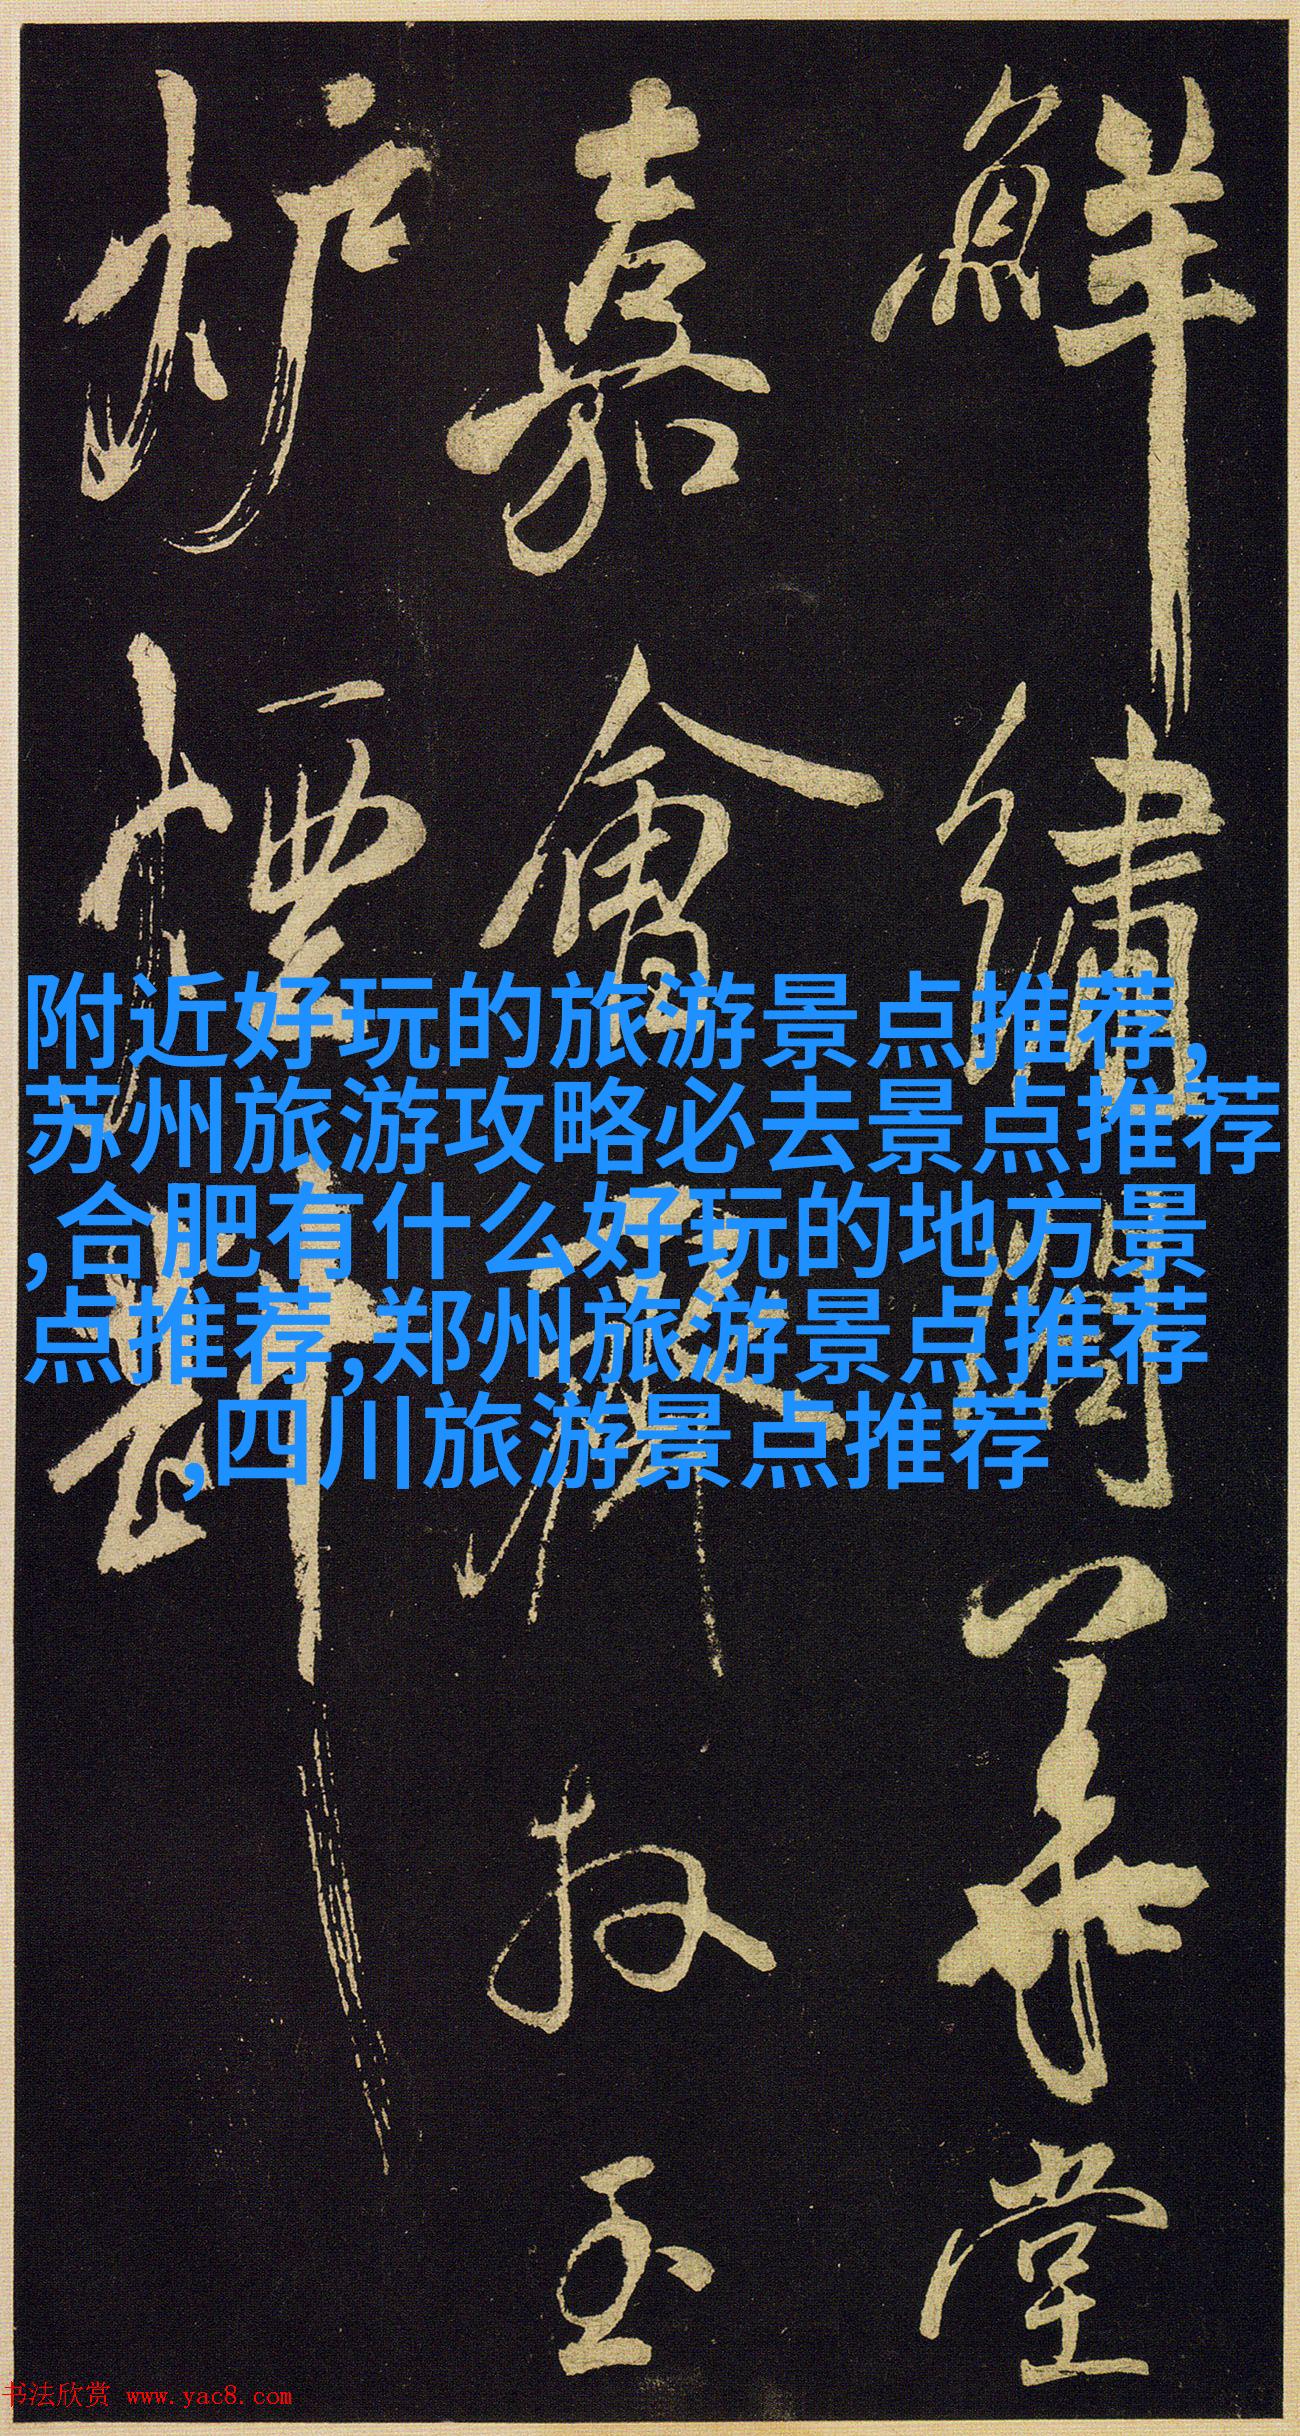 鮮繡華堂
嘉會玉
炉
附近好玩的旅游景点推荐,
苏州旅游攻略必去景点推荐
,合肥有什么好玩的地方景
点推荐,郑州旅游景点推荐
,四川旅游景点推荐
书法欣赏 www.yac8.com